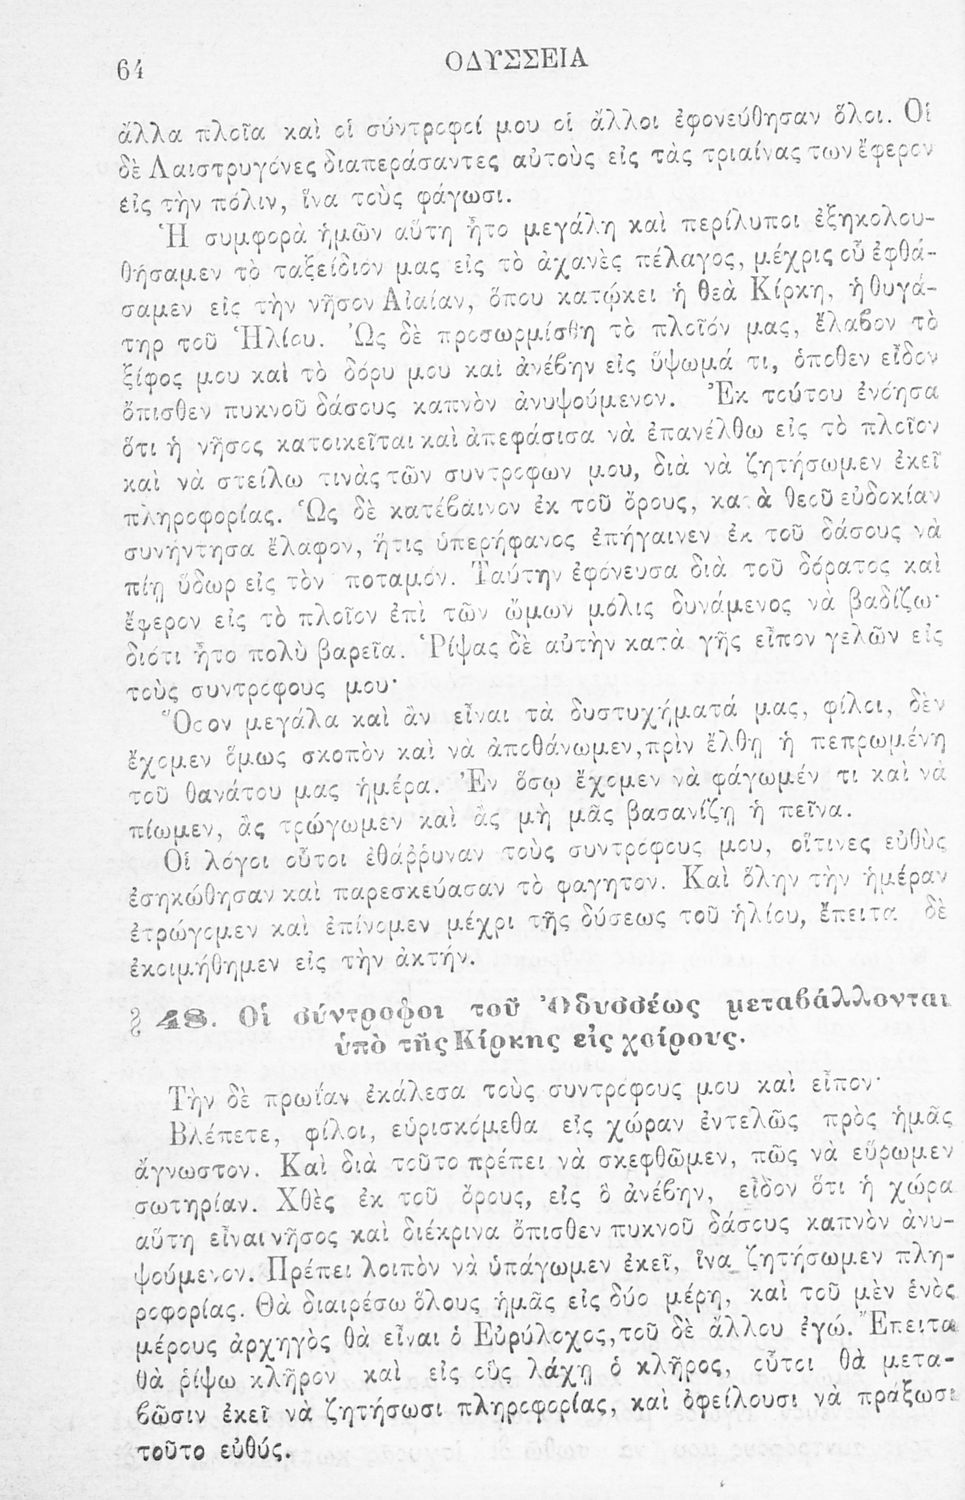 64
ΟΔΥΣΣΕΙΑ
ἄλλα πλοῖα καὶ οἱ σύντροφοί μου οἱ ἄλλοι ἐφονεύθησαν ὅλοι. Οἱ
δὲ Λαιστρυγόνες διαπεράσαντες αὐτοὺς εἰς τὰς τριαίνας των ἔφερον
εἰς τὴν πόλιν, ἵνα τοὺς φάγωσι.
Ἡ συμφορὰ ἡμῶν αὕτη ἦτο μεγάλη καὶ περίλυποι ἐξηκολου-
θήσαμεν τὸ ταξείδιόν μας εἰς τὸ ἀχανὲς πέλαγος, μέχρις οὗ ἐφθά-
σαμεν εἰς τὴν νῆσον Αἰαίαν, ὅπου κατῴκει ἡ θεὰ Κίρκη, ἡ θυγά-
τηρ τοῦ Ἡλίου. Ὡς δὲ προσωρμίσθη τὸ πλοῖόν μας, ἔλαβον τὸ
ξίφος μου καὶ τὸ δόρυ μου καὶ ἀνέβην εἰς ὕψωμά τι, ὁπόθεν εἶδον
ὄπισθεν πυκνοῦ δάσους καπνὸν ἀνυψούμενον. Ἐκ τούτου ἐνόησα
ὅτι ἡ νῆσος κατοικεῖται καὶ ἀπεφάσισα νὰ ἐπανέλθω εἰς τὸ πλοῖον
καὶ νὰ στείλω τινὰς τῶν συντρόφων μου, διὰ νὰ ζητήσωμεν ἐκεῖ
πληροφορίας. Ὡς δὲ κατέβαινον ἐκ τοῦ ὄρους, κατὰ θεοῦ εὐδοκίαν
συνήντησα ἔλαφον, ἥτις ὑπερήφανος ἐπήγαινεν ἐκ τοῦ δάσους νὰ
πίῃ ὕδωρ εἰς τὸν ποταμόν. Ταύτην ἐφόνευσα διὰ τοῦ δόρατος καὶ
ἔφερον εἰς τὸ πλοῖον ἐπὶ τῶν ὤμων μόλις δυνάμενος νὰ βαδίζω·
διότι ἦτο πολὺ βαρεῖα. Ῥίψας δὲ αὐτὴν κατὰ γῆς εἶπον γελῶν εἰς
τοὺς συντρόφους μου·
Ὅσον μεγάλα καὶ ἂν εἶναι τὰ δυστυχήματά μας, φίλοι, δὲν
ἔχομεν ὅμως σκοπὸν καὶ νὰ ἀποθάνωμεν, πρὶν ἔλθῃ ἡ πεπρωμένη
τοῦ θανάτου μας ἡμέρα. Ἐν ὅσῳ ἔχομεν νὰ φάγωμέν τι καὶ νὰ
πίωμεν, ἂς τρώγωμεν καὶ ἂς μὴ μᾶς βασανίζῃ ἡ πεῖνα.
Οἱ λόγοι οὗτοι ἐθάῤῥυναν τοὺς συντρόφους μου, οἵτινες εὐθὺς
ἐσηκώθησαν καὶ παρεσκεύασαν τὸ φαγητον. Καὶ ὅλην τὴν ἡμέραν
ἐτρώγομεν καὶ ἐπίνομεν μέχρι τῆς δύσεως τοῦ ἡλίου, ἔπειτα δὲ
ἐκοιμήθημεν εἰς τὴν ἀκτήν.
§ 48. Οἱ σύντροφοι τοῦ Ὀδυσσέως μεταβάλλονται
ὑπὸ τῆς Κίρκης εἰς χοίρους.
Τὴν δὲ πρωΐαν ἐκάλεσα τοὺς συντρόφους μου καὶ εἶπον·
Βλέπετε, φίλοι, εὑρισκόμεθα εἰς χώραν ἐντελῶς πρὸς ἡμᾶς
ἄγνωστον. Καὶ διὰ τοῦτο πρέπει νὰ σκεφθῶμεν, πῶς νὰ εὕρωμεν
σωτηρίαν. Χθὲς ἐκ τοῦ ὄρους, εἰς ὃ ἀνέβην, εἶδον ὅτι ἡ χώρα
αὕτη εἶναι νῆσος καὶ διέκρινα ὄπισθεν πυκνοῦ δάσους καπνὸν ἀνυ-
ψούμενον. Πρέπει λοιπὸν νὰ ὑπάγωμεν ἐκεῖ, ἵνα ζητήσωμεν πλη-
ροφορίας. Θὰ διαιρέσω ὅλους ἡμᾶς εἰς δύο μέρη, καὶ τοῦ μὲν ἑνὸς
μέρους ἀρχηγὸς θὰ εἶναι ὁ Εὐρύλοχος, τοῦ δὲ ἄλλου ἐγώ. Ἔπειτα
θὰ ῥίψω κλῆρον καὶ εἰς οὓς λάχῃ ὁ κλῆρος, οὗτοι θὰ μετα-
βῶσιν ἐκεῖ νὰ ζητήσωσι πληροφορίας, καὶ ὀφείλουσι νὰ πράξωσι
τοῦτο εὐθύς.